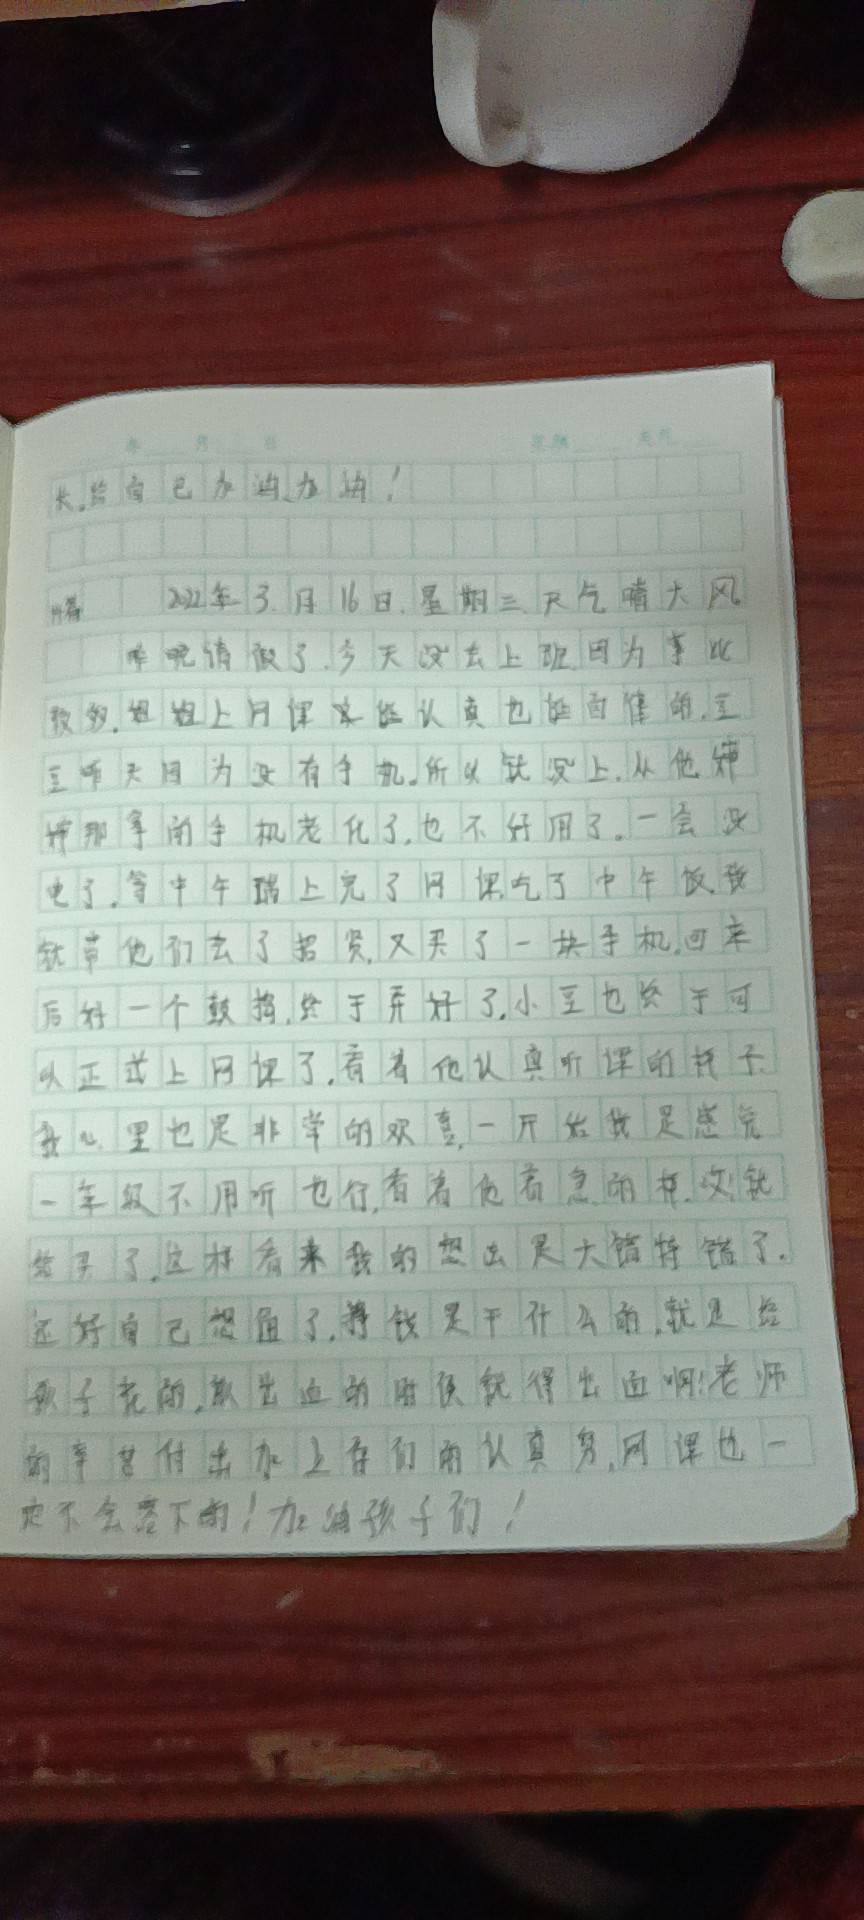 年 月 日 星期 天气
长。给自己加油加油！
2022年3月16日.星期三天气晴大风
昨晚请假了.今天没去上班.因为事比
较多.姐姐上网课 认真也挺自律的.豆
豆昨天因为没有手机。所以就没上.从他婶
婶那拿的手机老化了.也不好用了。一会没
电了.等中午 上完了网课.吃了中午饭.我
就带他们去了招贤.又买了一块手机.回来
后好一个鼓捣.终于弄好了.小豆也终于可
以正式上网课了.看着他认真听课的样子.
我心里也是非常的欢喜.一开始我是感觉
一年级不用听也行.看着他着急的样.次就
给买了.这样看来我的想法是大错特错了.
还好自己想通了.挣钱是干什么的.就是给
孩子花的.该出血的时候就得出血啊！老师
的辛苦付出加上 们的认真 .网课也一
定不会落下的！加油孩子们！